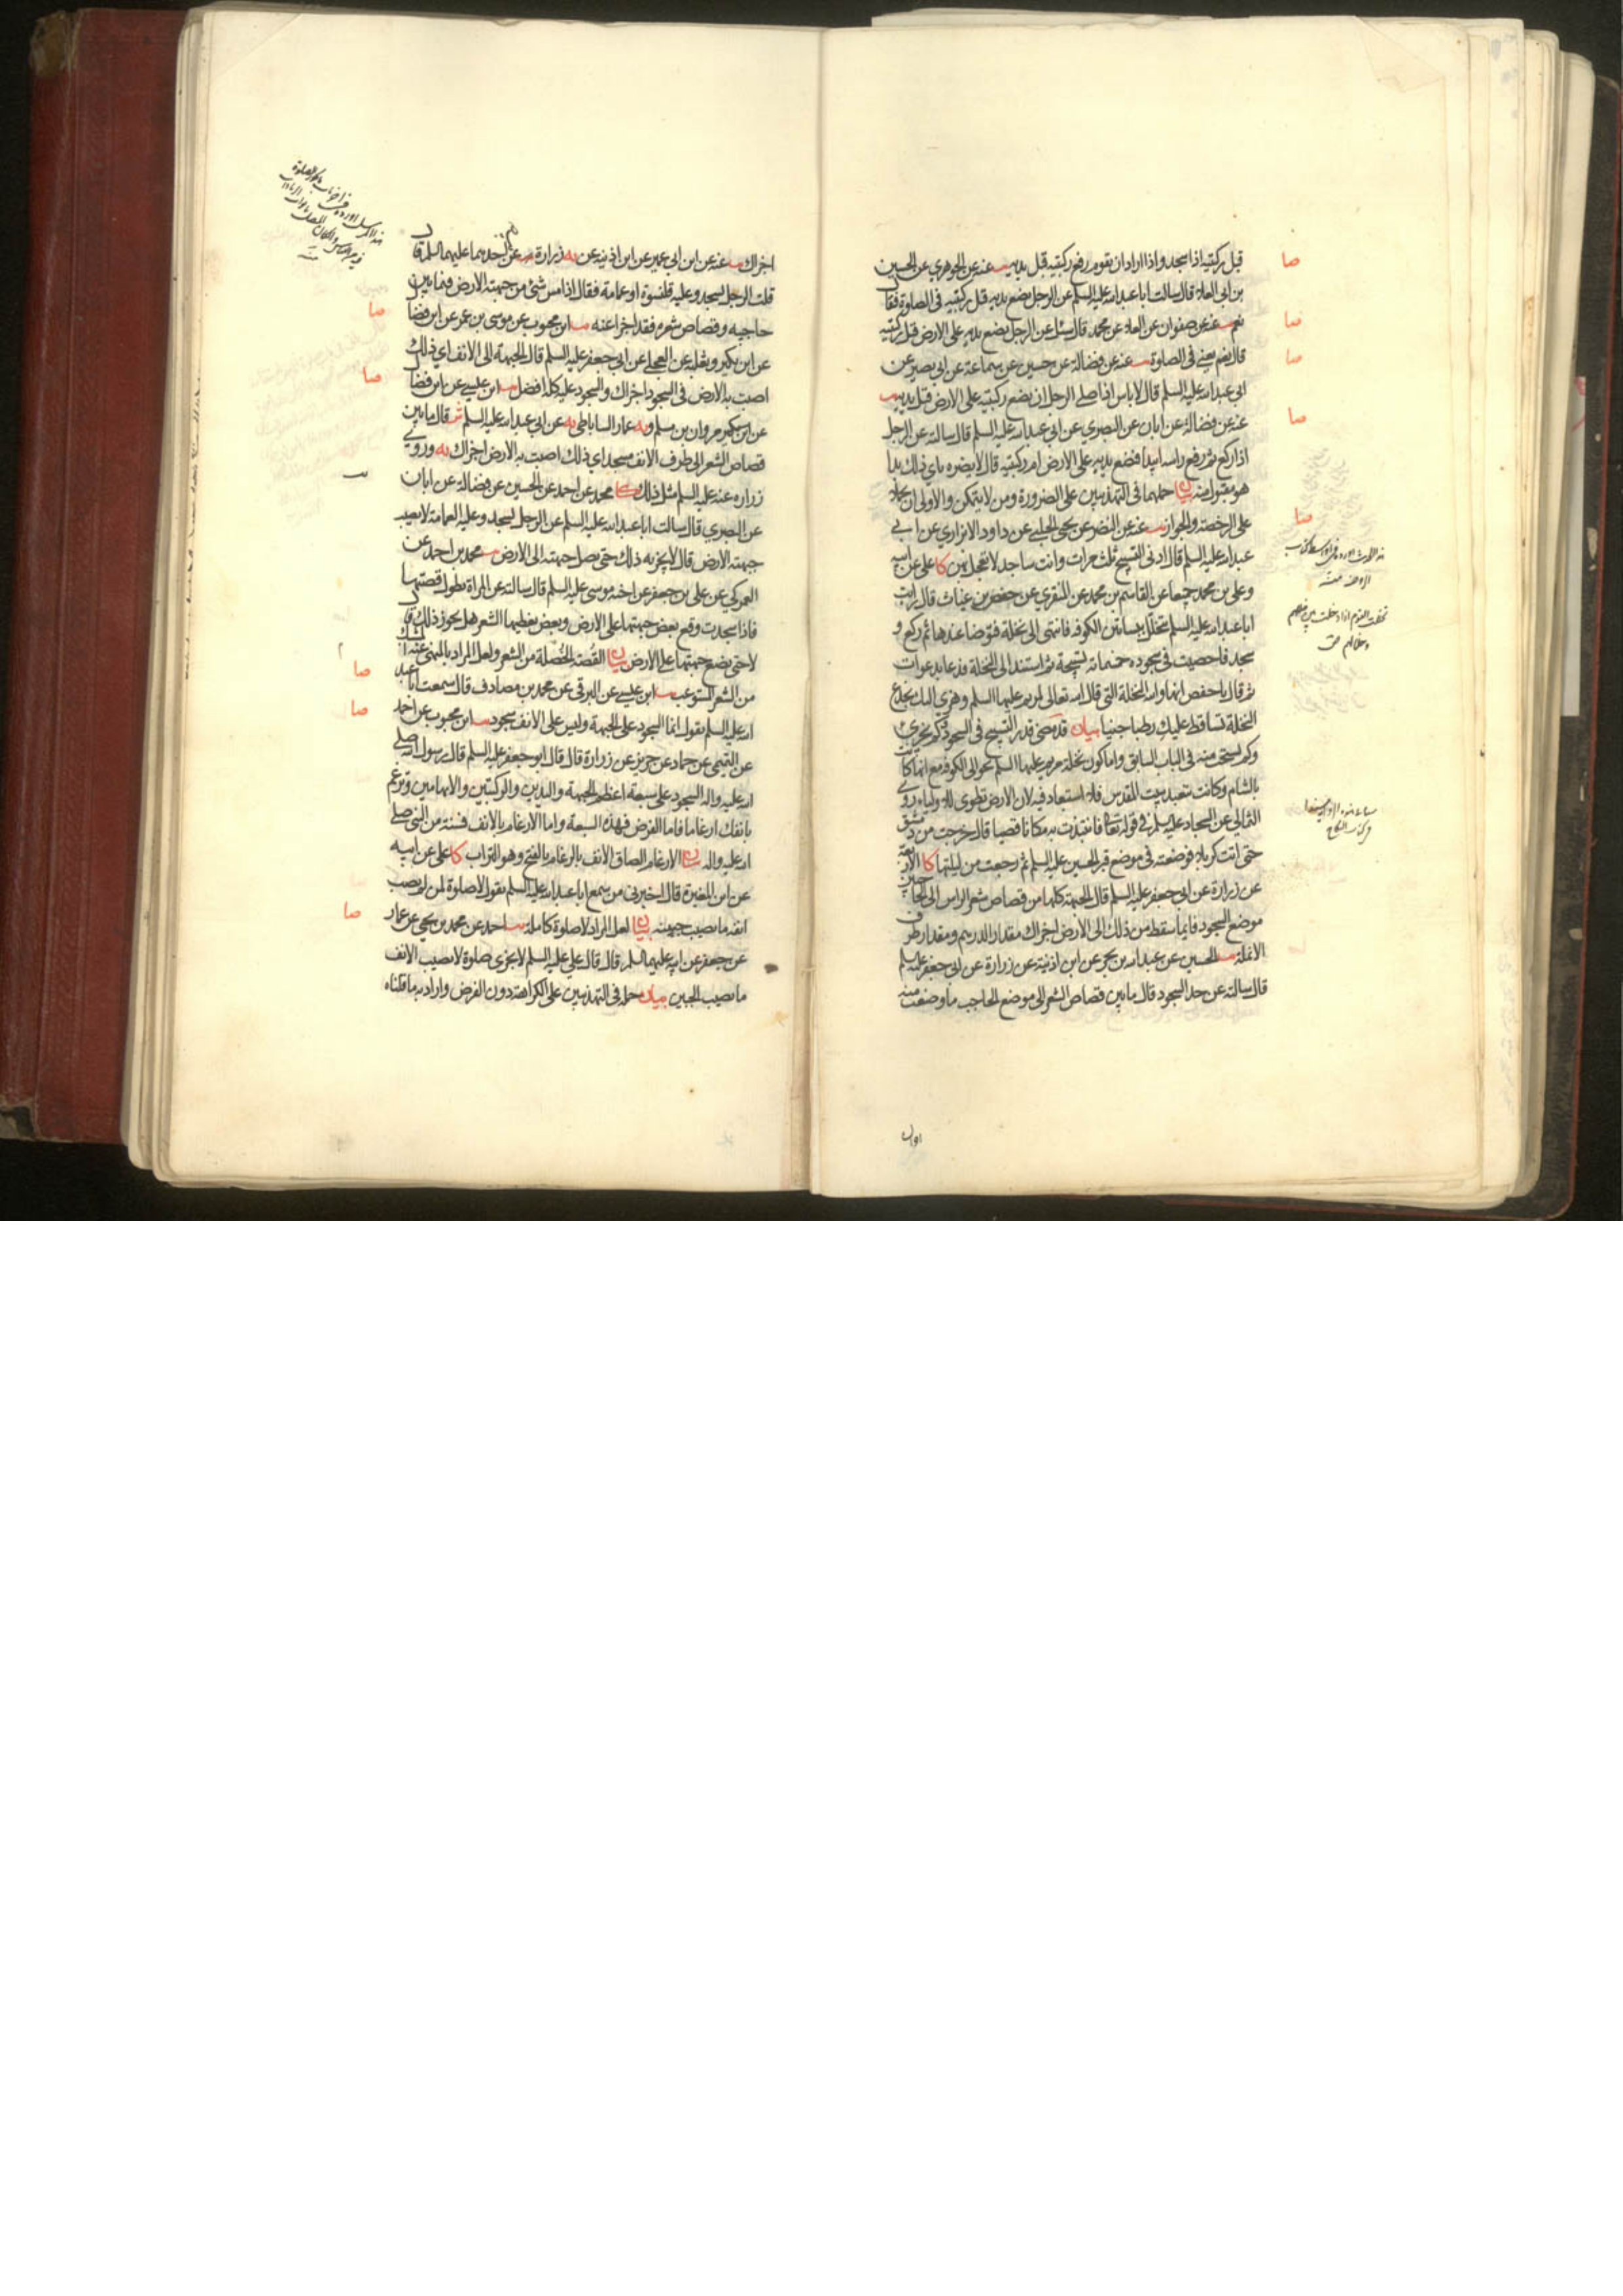 قبل ركبتيه اذا سجد واذا اراد ان يقوم رفع ركبتيه قبل يديه يب عنه عن الجوهري عن الحسين
بن ابي العلا قال سالت ابا عبد الله عليه السلم عن الرجل يضع يديه قبل ركبتيه في الصلوة فقال
نعم يب عنه عن صفوان عن العلا عن محمد قال سئل عن الرجل يضع يديه على الارض قبل ركبتيه
قال نعم يعني في الصلوة يب عنه عن فضالة عن حسين عن سماعة عن ابي بصير عن
ابي عبد الله عليه السلم قال لا باس اذا صلى الرجل ان يضع ركبتيه على الارض قبل يديه يب
عنه عن فضالة عن ابان عن البصري عن ابي عبد الله عليه السلم قال سالته عن الرجل
اذا ركع ثم رفع راسه ايبدا فيضع يديه على الارض ام ركبتيه قال لا يضره باي ذلك بدا
هو مقبول منه بيان حملهما في التهذيبين على الضرورة ومن لا يتمكن والاولى ان يحملا
على الرخصة والجواز يب عنه عن النضر عن يحيى الحلبي عن داود الابزاري عن ابي
عبد الله عليه السلم قال ادنى التسبيح ثلث مرات وانت ساجد لا تعجل بهن كا علي عن ابيه
وعلي بن محمد جميعا عن القاسم بن محمد عن المنقري عن حفص بن غياث قال رايت
ابا عبد الله عليه السلم يتخلل بساتين الكوفة فانتهى الى نخلة فتوضا عندها ثم ركع و
سجد فاحصيت في سجوده خمسمائة تسبيحة ثم استند الى النخلة فدعا بدعوات
ثم قال ياحفص انها والله النخلة التي قال الله تعالى لمريم عليها السلم وهزي اليك بجذع
النخلة تساقط عليك رطبا جنيا بيان قد مضى قدر التسبيح في السجود وكم يجزي
وكم يستحب منه في الباب السابق واما كون نخلة مريم عليها السلم حوالي الكوفة مع انها كانت
بالشام وكانت تتعبد ببيت المقدس فلا استبعاد فيه لان الارض تطوى للاولياء روى
الثمالي عن السجاد عليه السلم في قوله تعالى فانتبذت به مكانا قصيا قال خرجت من دمشق
حتى اتت كربلا فوضعته في موضع قبر الحسين عليه السلم ثم رجعت من ليلتها كا الاربعة
عن زرارة عن ابي جعفر عليه السلم قال الجبهة كلها من قصاص شعر الراس الى الحاجبين
موضع السجود فايما سقط من ذلك الى الارض اجزاك مقدار الدرهم ومقدار طرف
الانملة يب الحسين عن عبد الله بن بحر عن ابن اذينة عن زرارة عن ابي جعفر عليه السلم
قال سالته عن حد السجود قال ما بين قصاص الشعر الى موضع الحاجب ما وضعت منه
صا
صا
صا
صا
صا
اجزاك يب عنه عن ابن ابي عمير عن ابن اذينه عن يه زرارة يب عن احدهما عليهما السلم قال
قلت الرجل يسجد وعليه قلنسوة او عمامة فقال اذا مس شئ من جبهته الارض فيما بين
حاجبيه وقصاص شعره فقد اجزا عنه يب ابن محبوب عن موسى بن عمر عن ابن فضال
عن ابن بكير وثعلبة عن العجلي عن ابي جعفر عليه السلم قال الجبهة الى الانف اي ذلك
اصبت به الارض في السجود اجزاك والسجود عليه كله افضل يب ابن عيسى عن ابن فضال
عن ابن بكير مروان بن مسلم و يه عمار الساباطي يه عن ابي عبد الله عليه السلم ش قال ما بين
قصاص الشعر الى طرف الانف مسجد اي ذلك اصبت به الارض اجزاك يه وروى
زراره عنه عليه السلم مثل ذلك كا محمد عن احمد عن الحسين عن فضالة عن ابان
عن البصري قال سالت ابا عبد الله عليه السلم عن الرجل يسجد وعليه العمامة لا يصيب
جبهته الارض قال لا يجزيه ذلك حتى يصل جبهته الى الارض يب محمد بن احمد عن
العمركي عن علي بن جعفر عن اخيه موسى عليه السلم قال سالته عن المراة تطول قصتها
فاذا سجدت وقع بعض جبهتها على الارض وبعض يغطيها الشعر هل يجوز ذلك قال
لا حتى يضع جبهتها على الارض بيان القُصّة الخُصلة من الشعر ولعل المراد بالمنهي عنه
من الشعر المستوعب يب ابن عيسى عن البرقي عن محمد بن مصادف قال سمعت ابا عبد
الله عليه السلم يقول انما السجود على الجبهة وليس على الانف سجود يب ابن محبوب عن احمد
عن التميمي عن حماد عن حريز عن زرارة قال قال ابو جعفر عليه السلم قال رسول الله صلى
الله عليه واله السجود على سبعة اعظم الجبهة واليدين والركبتين والابهامين وترغم
بانفك ارغاما فاما الفرض فهذه السبعة واما الارغام بالانف فسنة من النبي صلى
الله عليه واله بيان الارغام الصاق الانف بالرغام بالفتح وهو التراب كا علي عن ابيه
عن ابن المغيرة قال اخبرني من سمع ابا عبد الله عليه السلم يقول لا صلوة لمن لم يصب
انفه ما يصيب جبهته بيان لعل المراد لا صلوة كاملة يب احمد عن محمد بن يحيى عن عمار
عن جعفر عن ابيه عليهما السلم قال قال علي عليه السلم لا يجزي صلوة لا يصيب الانف
ما يصيب الجبين بيان حمله في التهذيبين على الكراهة دون الفرض واراد به ما قلناه
صا
صا
صا
صا
صا